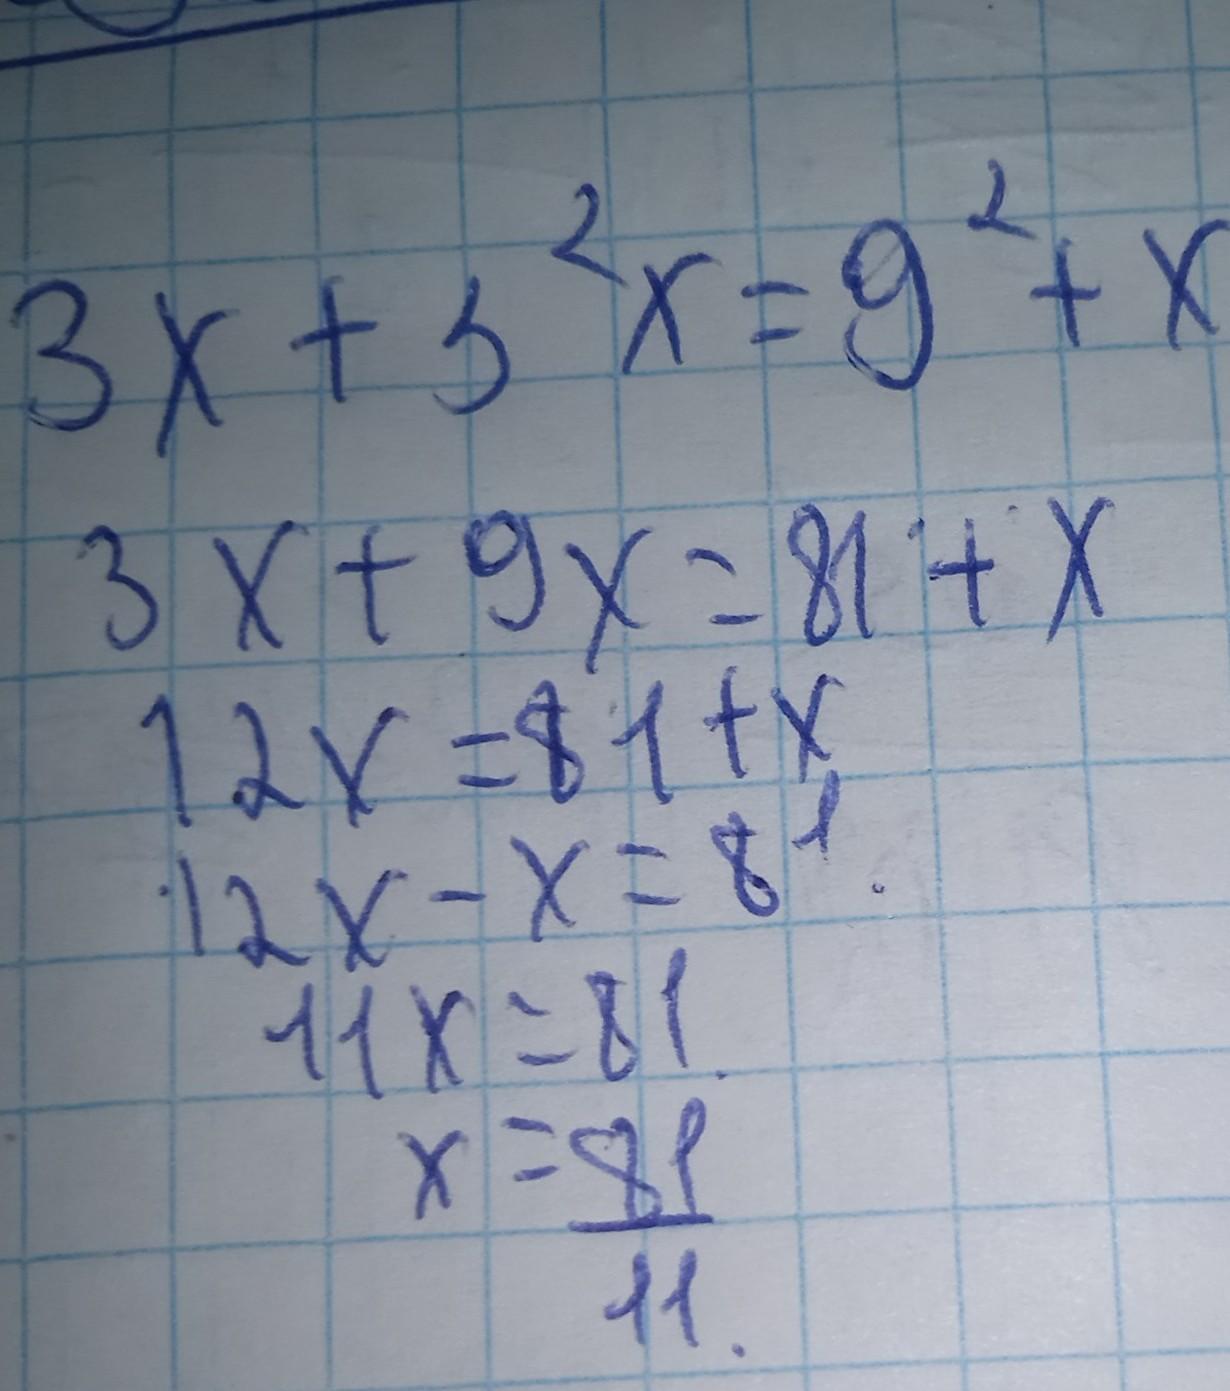 3x + 3²x = 9² + x
3x + 9x = 81 + x
12x = 81 + x
12x - x = 81.
11x = 81.
x = 81/11.